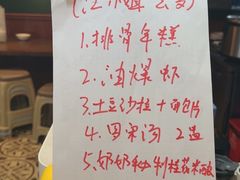 1.排骨年糕
2.油爆虾
3.土豆沙拉+面包片
4.罗宋汤 2盅
5.奶奶秘制桂花米酿